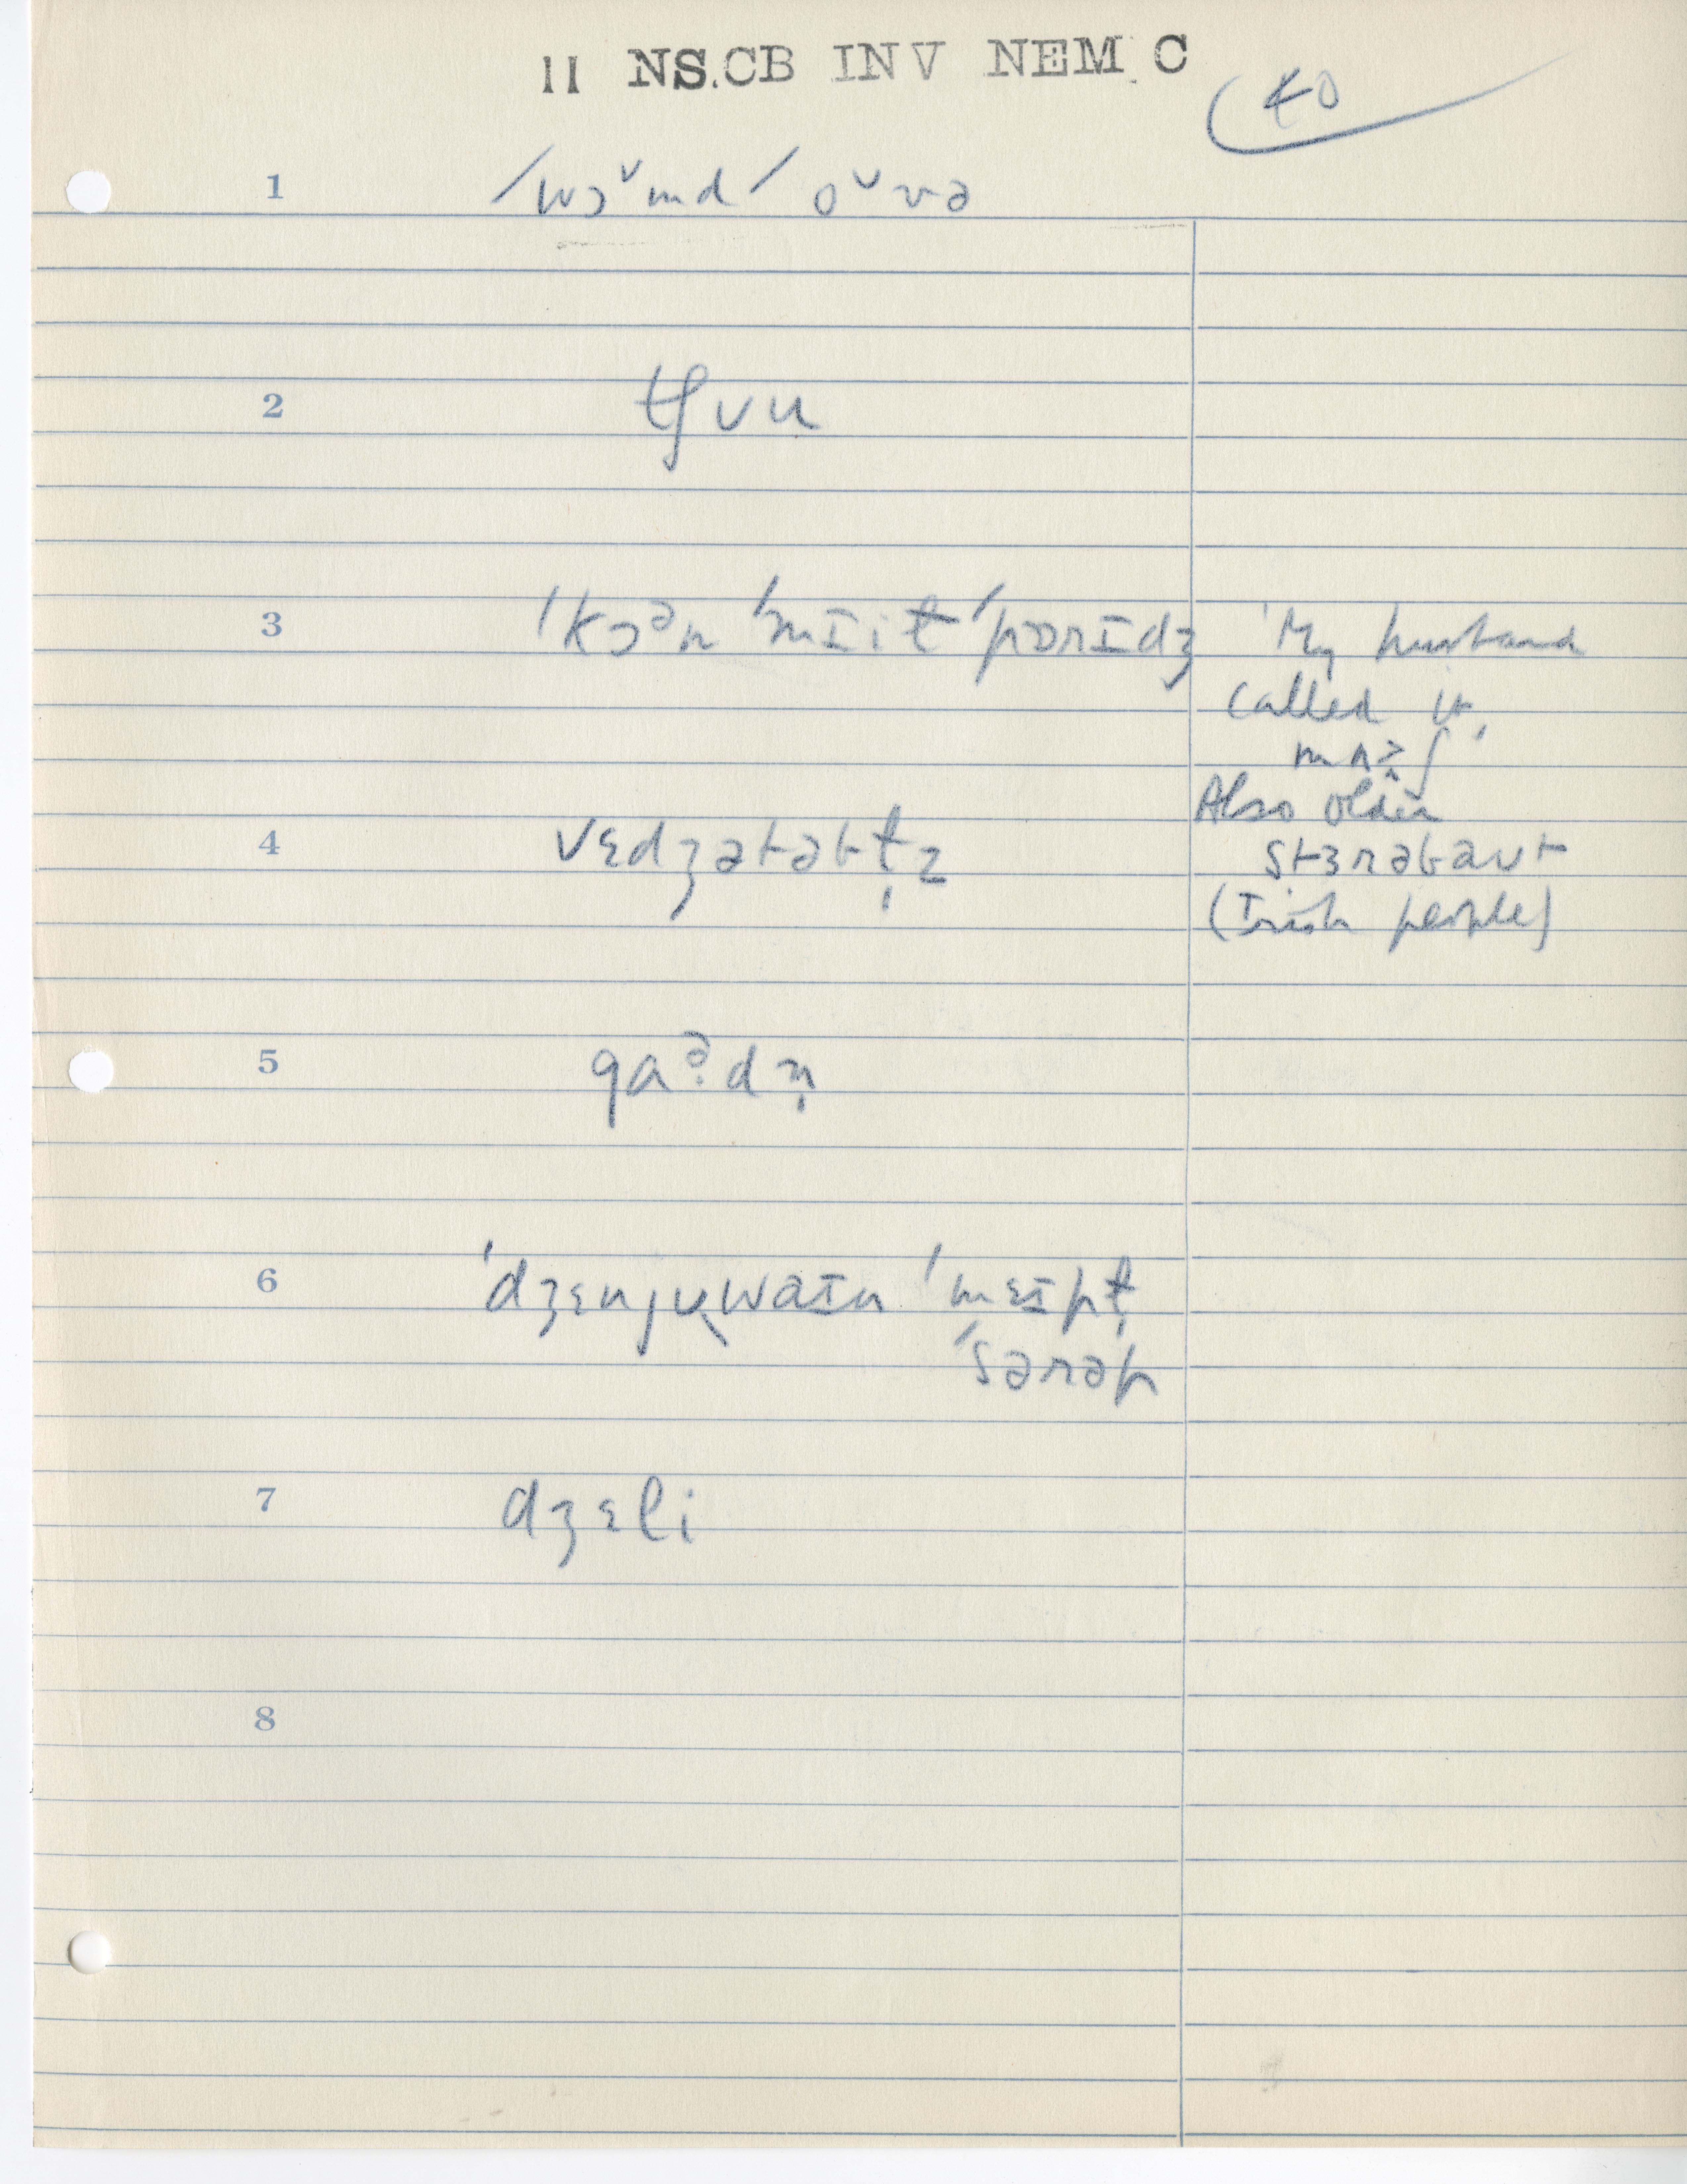 11 NS.CB INV NEM C
40
1 ˈwɔᵛmdˈoᵛvə
2 tʃuu
3 ˈkɔᵊn ˈmɪit ˈpɒrɪdʒ
My husband
called it,
mʌ>ʃ
Also older
stɜrəbaut
(Irish people)
4 vɛdʒətəbt̬̩z
5 gaᵊ̣dn̩
6 ˈdʒɛnjuwaɪn ˈmɛɪpɫ̩
ˈsərəp
7 dʒɛli
8